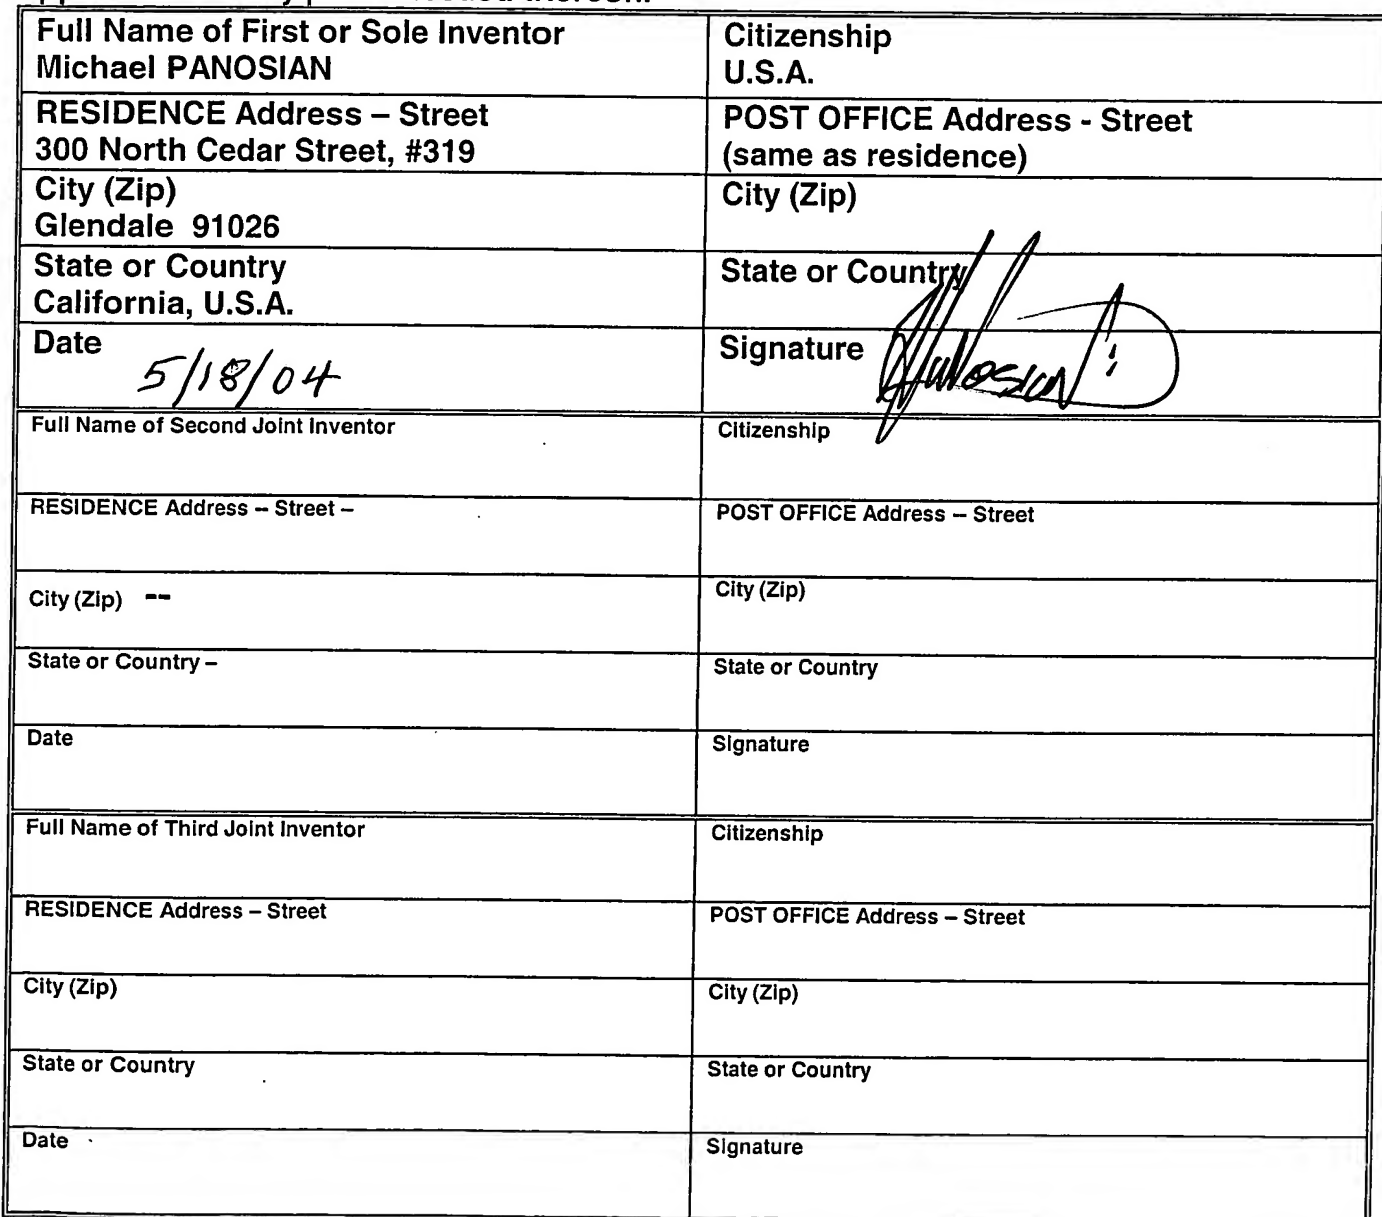 Full Name of First or Sole Inventor
Michael PANOSIAN
Citizenship
U.S.A.
RESIDENCE Address – Street
300 North Cedar Street, #319
POST OFFICE Address - Street
(same as residence)
City (Zip)
Glendale 91026
City (Zip)
State or Country
California, U.S.A.
State or Country
Date
5/18/04
Signature
Full Name of Second Joint Inventor
Citizenship
RESIDENCE Address – Street –
POST OFFICE Address – Street
City (Zip) --
City (Zip)
State or Country –
State or Country
Date
Signature
Full Name of Third Joint Inventor
Citizenship
RESIDENCE Address – Street
POST OFFICE Address – Street
City (Zip)
City (Zip)
State or Country
State or Country
Date
Signature